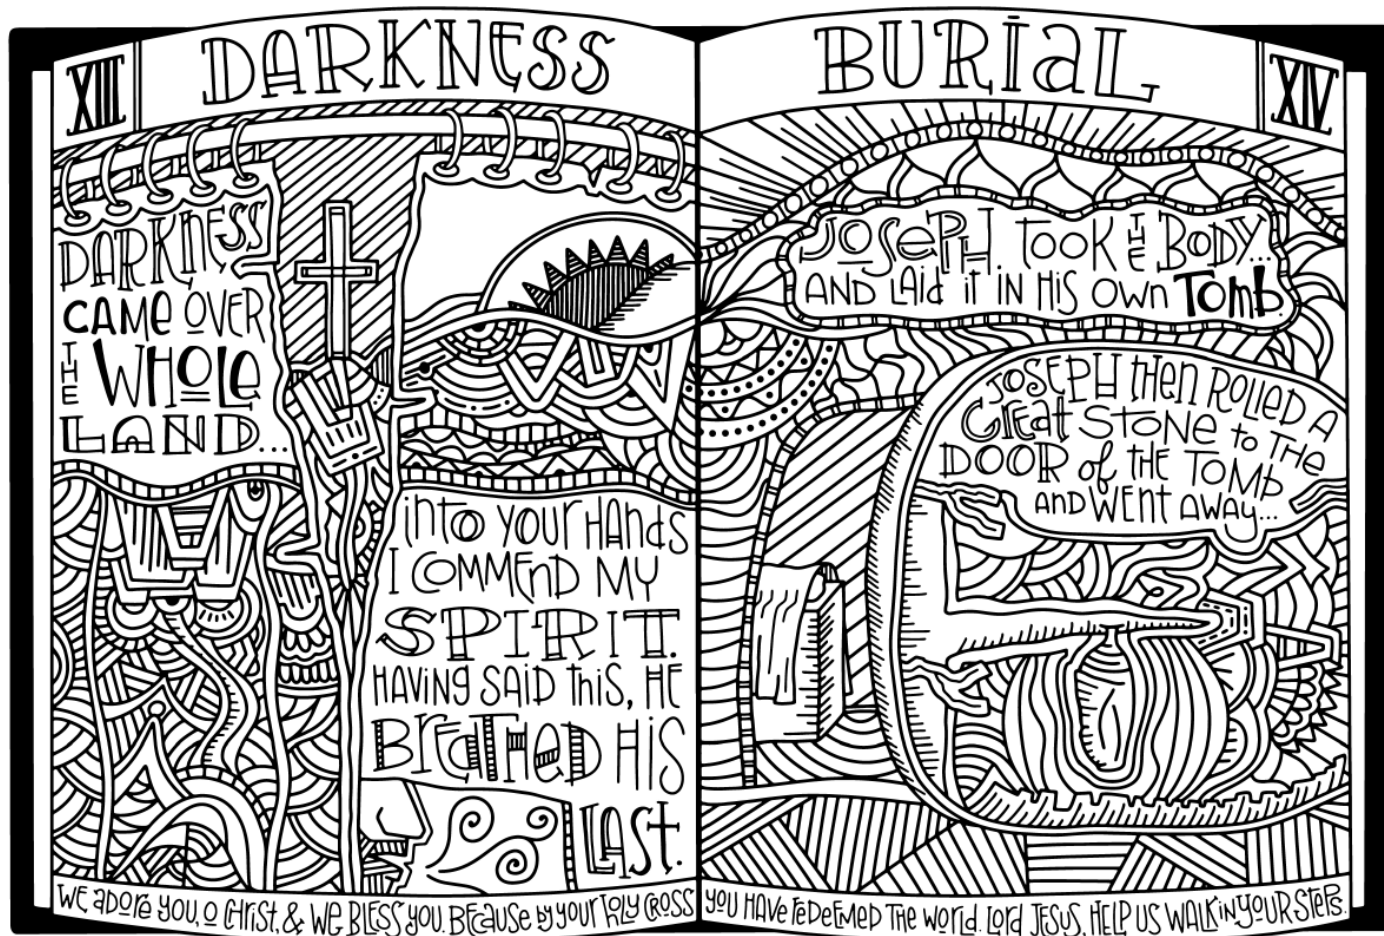 XIII DARKNESS
DARKNESS
CAME OVER
THE WHOLE
LAND...
into YOUr HANdS
I COMMEnD MY
SPIRIT.
HAVINg SAiD thiS, HE
BreatHeD HiS
LASt.
WE aDOrE YOU, O CHrist, & WE BLESS YOU. BEcAuse by your HOLY CROSS
BURiaL XIV
JOSePH TOOK tHE BODY...
AND LAid it iN HiS OWn Tomb.
JOSEPH tHEn ROLLED A
GrEat STONE to THE
DOOR of tHE TOMb
AND WENt AWAY...
YOU HAVE reDeEMED THE WOrlD. LOrd JESUS, HELP US WALK iN YOUR STEPS.